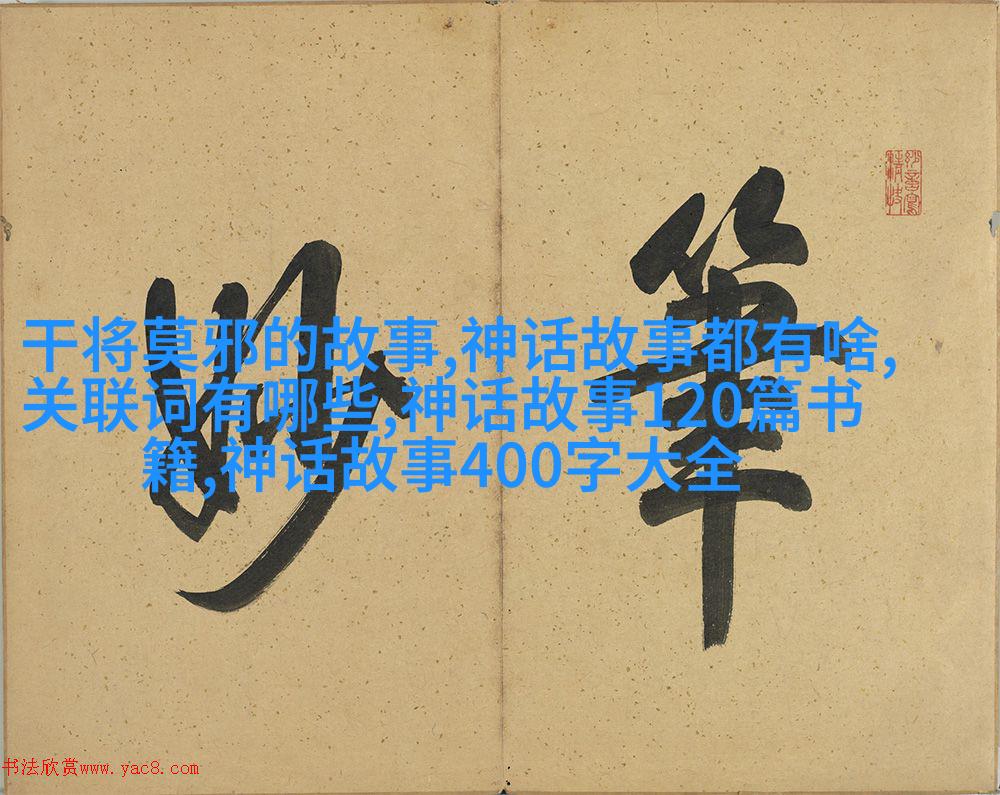 筆妙
干将莫邪的故事,神话故事都有啥,
关联词有哪些,神话故事120篇书
籍,神话故事400字大全
书法欣赏www.yac8.com